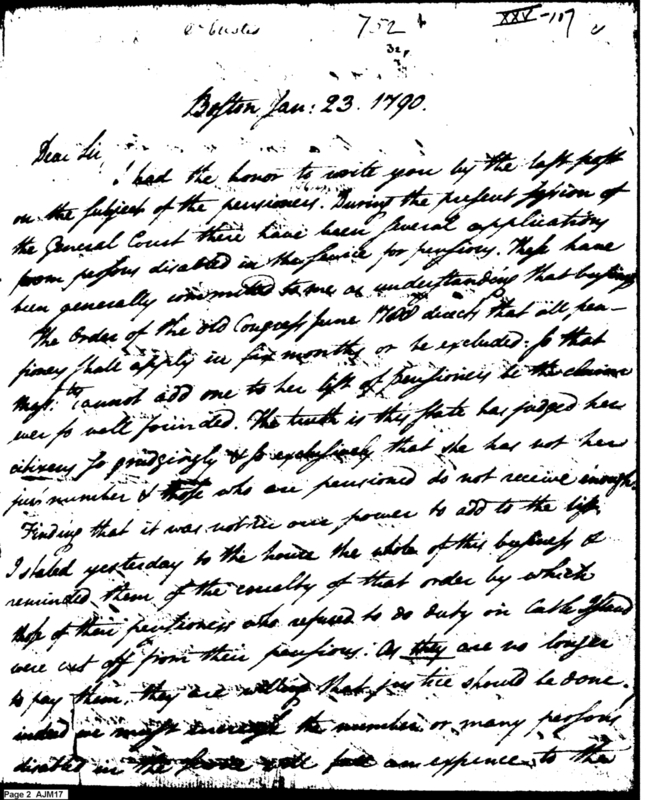 Dr Eustis 752 XXV-117
32
Boston Jan: 23. 1790.
Dear Sir
I had the honor to write you by the last post
on the subject of the pensioners. During the present session of
the General Court there have been several applications
from persons disabled in the service for pensions. These have
been generally committed to me as understanding that business
The Order of the old Congress June 1788 directs that all pen-
sioners shall apply in six months or be excluded: so that
Mass:tts cannot add one to her list of Pensioners be the claims
ever so well founded. The truth is this State has judged her
citizens so grudgingly & so exclusively that she has not her
just number & those who are pensioned do not receive enough.
Finding that it was not in our power to add to the list,
I stated yesterday to the house the whole of this business &
reminded them of the cruelty of that order by which
those of their pensioners who refused to do duty on Castle Island
were cut off from their pensions. As they are no longer
to pay them, they are willing that justice should be done.
indeed we must the number or many persons
disabled in the service will fall an expence to the
Page 2 AJM17